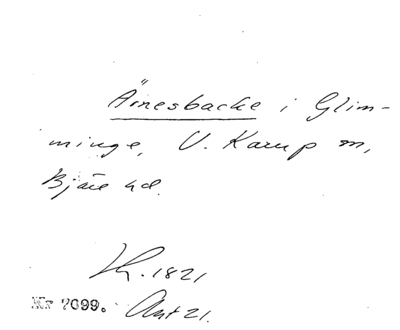 Ärnesbacke i Glim-
minge, V. Karup m,
Bjäre hd.
Lh. 1821
Nr 7099. Ant 21.